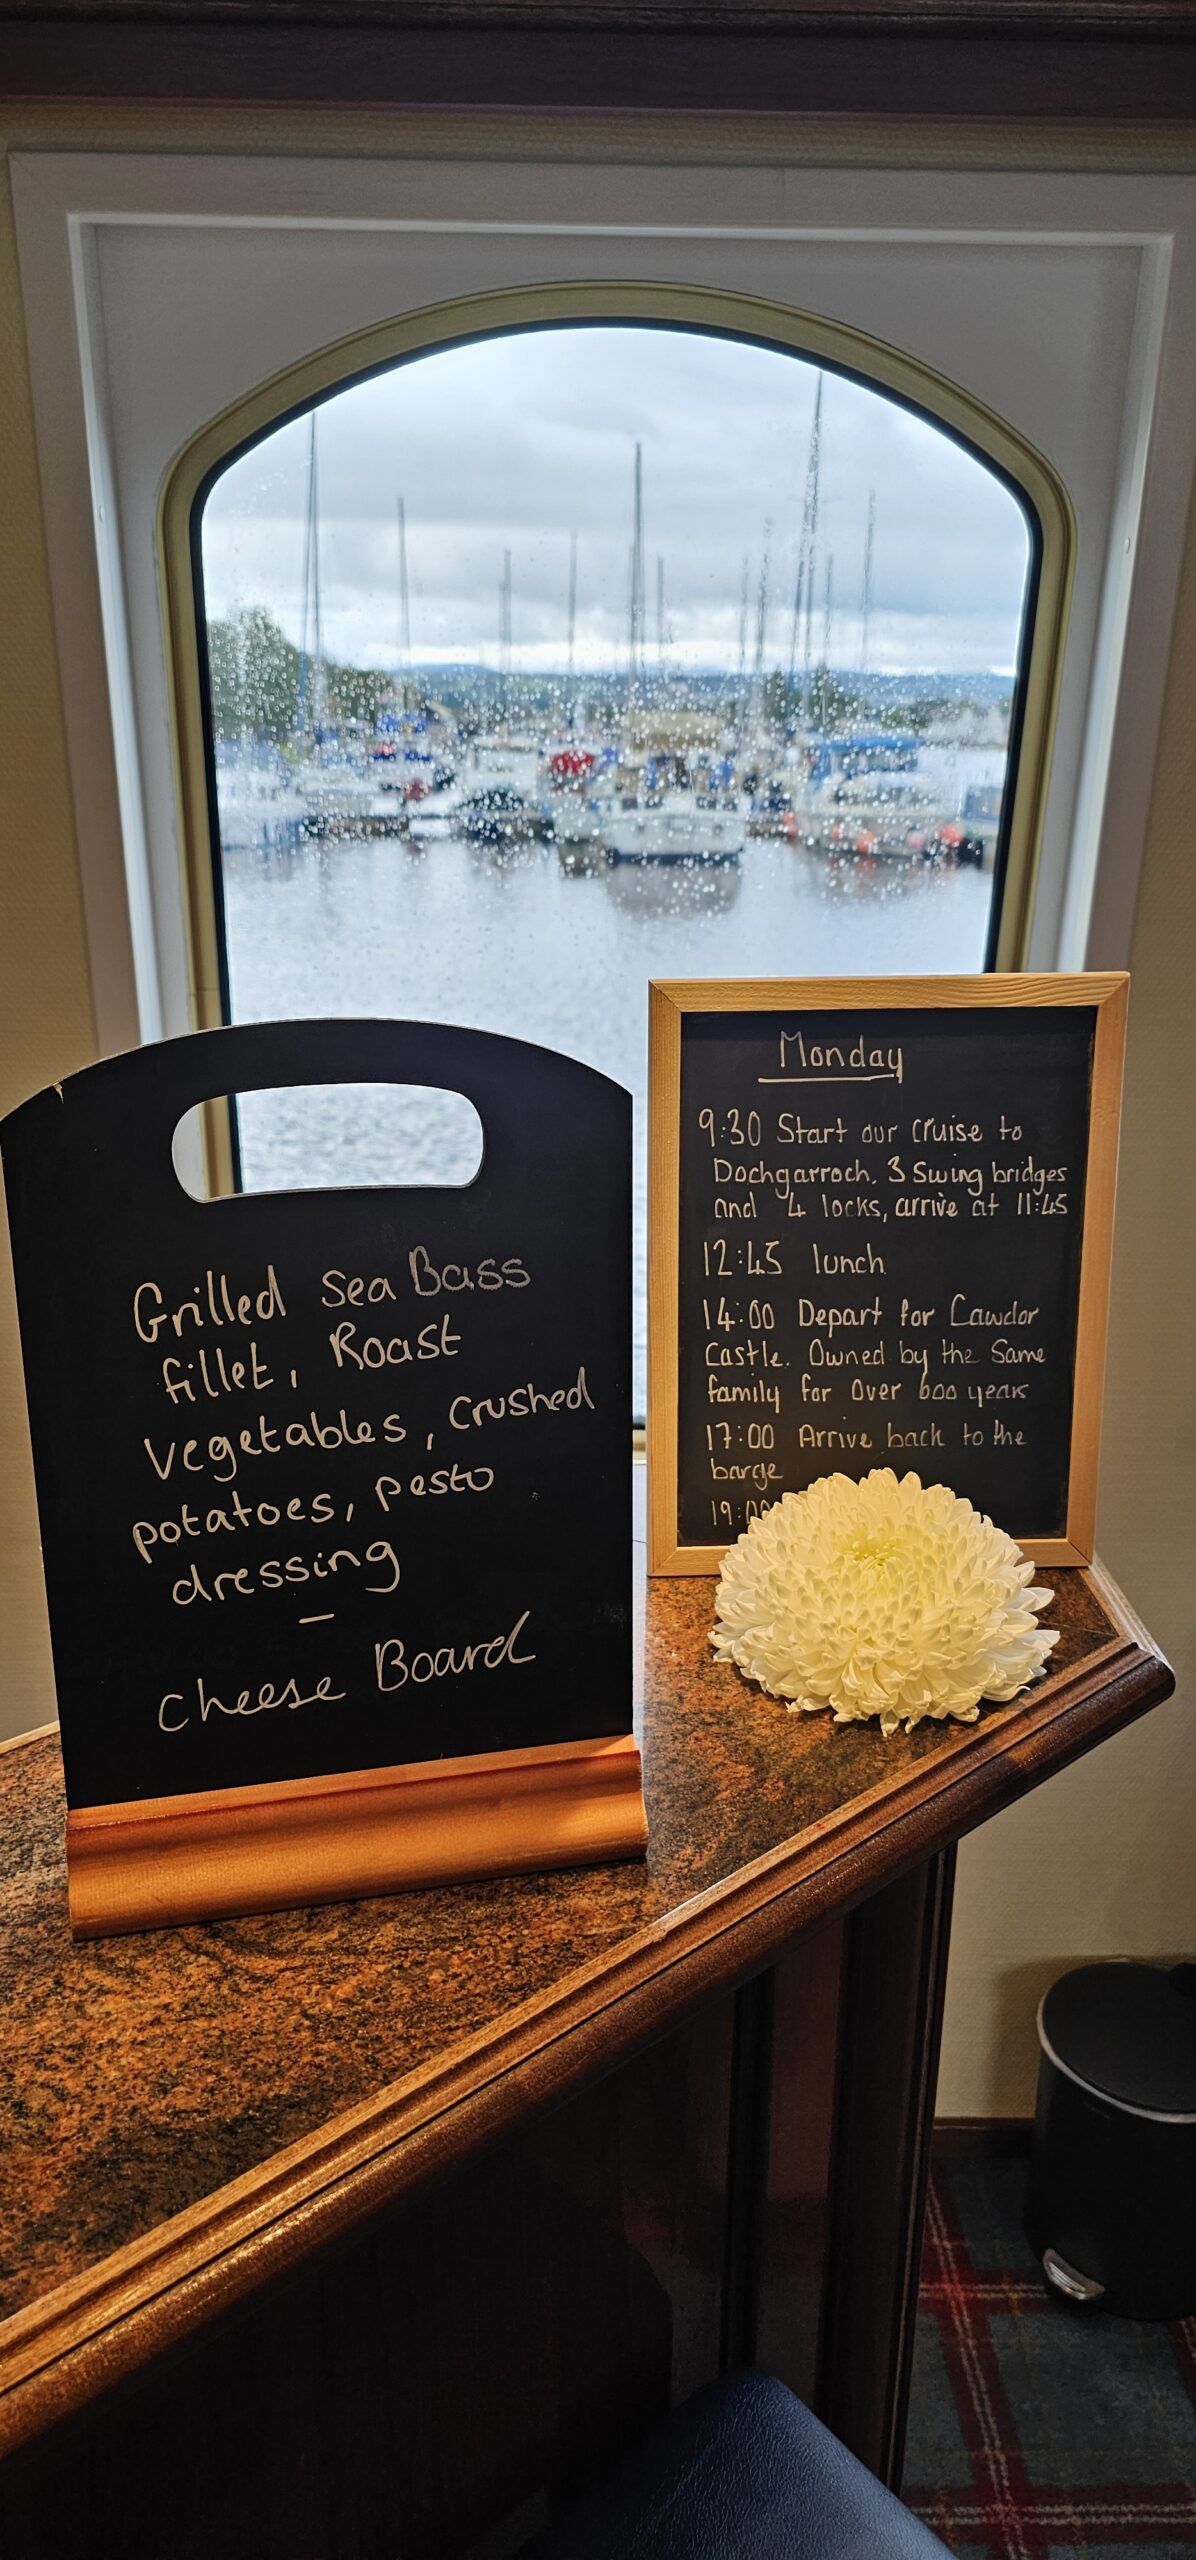 Grilled Sea Bass
fillet, Roast
vegetables, crushed
potatoes, pesto
dressing
–
Cheese Board
Monday
9:30 Start our cruise to
Dochgarroch, 3 Swing bridges
and 4 locks, arrive at 11:45
12:45 lunch
14:00 Depart for Cawdor
Castle. Owned by the Same
family for over 600 years
17:00 Arrive back to the
barge
19:00